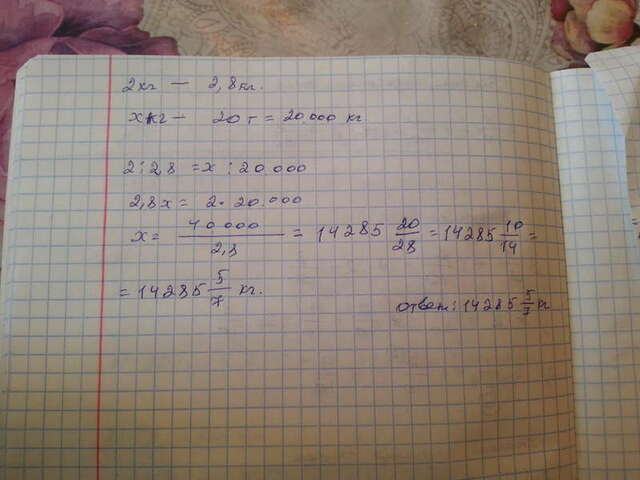 2кг — 2,8кг.
x кг — 20 т = 20.000 кг
2 : 2,8 = x : 20.000
2,8x = 2 · 20.000
x = 40.000/2,8 = 14285 20/28 = 14285 10/14 =
= 14285 5/7 кг.
ответ: 14285 5/7 кг